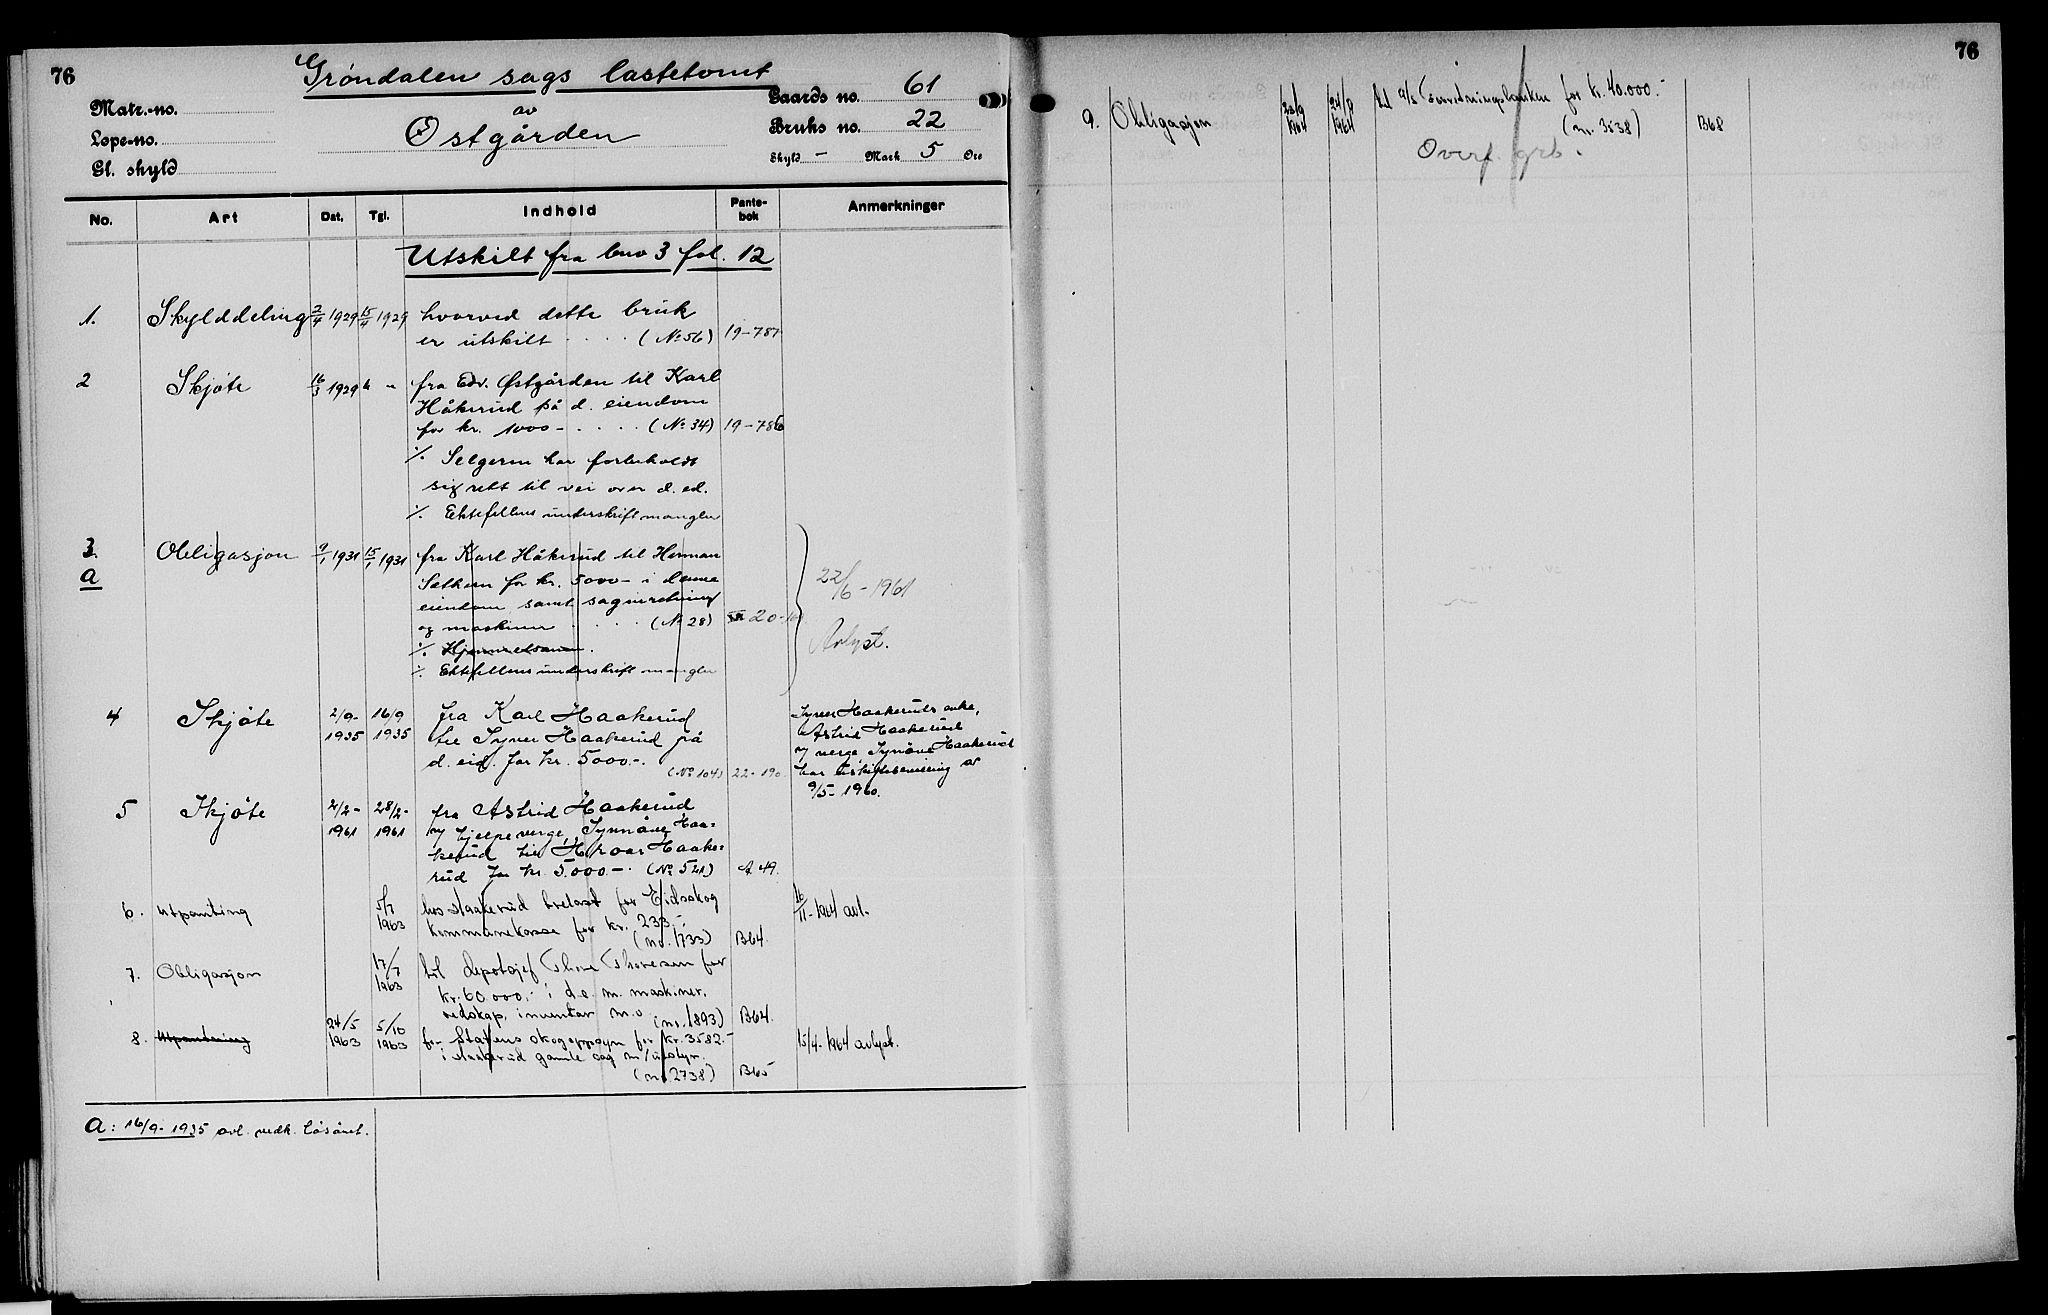 76
Grøndalen sags lastetomt
Matr.-no.
av
Gaards no. 61
Løpe-no.
Østgården
Bruks no. 22
Gl. skyld
Skyld – Mark 5 Øre
No. Art Dat. Tgl. Indhold Pante-bok Anmerkninger
Utskilt fra bno 3 fol. 12
1. Skylddeling 2/4 1929 15/4 1929 hvorved dette bruk
er utskilt . . . . (No 56) 19-787
2 Skjøte 16/3 1929 " " fra Edv. Østgården til Karl
Håkerud på d. eiendom
for kr. 1000 - . . . . (No 34) 19-786
./. Selgeren har forbeholdt
sig rett til vei over d. ed.
./. Ektefellens underskrift mangler
3. Obligasjon 9/1 1931 15/1 1931 fra Karl Håkerud til Herman
a
Sætheren for kr. 5000 - i denne
eiendom samt saginretning
og maskiner . . . . (No 28) 20-
./. Hjemmelsmann.
./. Ektefellens underskrift mangler
22/6 - 1961
Avlyst.
4 Skjøte 2/9- 1935 16/9 1935 fra Karl Haakerud
til Syver Haakerud på
d. eid. for kr. 5000.-.
(No 104) 22-190
Syver Haakeruds enke,
Astrid Haakerud
v/ verge Synøve Haakerud
har uskiftebevilling av
9/5- 1960.
5 Skjøte 2/2- 1961 28/2- 1961 fra Astrid Haakerud
v/ hjelpeverge, Synnøve Haa-
kerud til Hroar Haake-
rud for kr. 5.000.-. (No 521) A 49.
6. Utpanting 5/7 1963 hos Haakerud trelast for Eidskog
kommunekasse for kr. 233,-
(no. 1733) B64.
16/11-1964 avl.
7. Obligasjon 17/7 1963 til depotsjef Thor Thoresen for
kr. 60.000,- i d.e. m. maskiner,
redskap, inventar m.v (no. 1893) B64.
8. Utpantning 24/5 1963 5/10 1963 for Statens skogoppsyn for kr. 3582.-
i Haakerud gamle sag m/utstyr.
(no 2738) B65
15/4-1964 avlyst.
a: 16/9- 1935 avl. vedk. løsøret.
76
9. Obligasjon 1964 24/8 1964 til a/s Forretningsbanken for kr. 40.000.-
(nr. 3538) B68
Overf. grb.